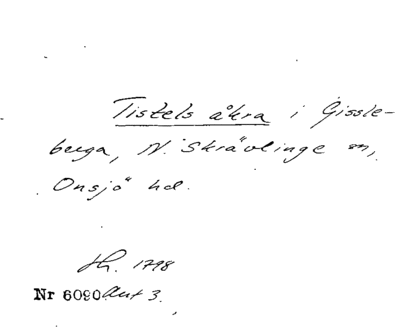 Tistels åkra i Gissle-
berga, N. Skrävlinge sn,
Onsjö hd.
Lh. 1798
Nr 6090 Ant 3.